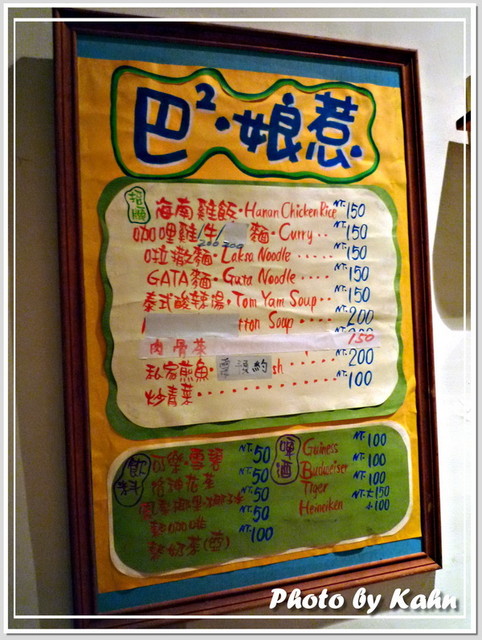 巴²·娘惹
招願
海南雞飯·Hainan Chicken Rice NT.150
咖哩雞/牛/ 麵·Curry.. NT.150
200 200
啦撒麵·Laksa Noodle ..... NT.150
GATA麵·Gata Noodle .... NT.150
泰式酸辣湯·Tom Yam Soup.. NT.150
tton Soup .... 200
肉骨茶 150
私家煎魚· 預約 sh ..... NT.200
炒青菜 .......... NT.100
飲料
可樂·雪碧 NT.50
NT.50
NT.50
熱咖啡 NT.50
熱奶茶 NT.100
啤酒
Guiness NT.100
Budweiser NT.100
Tiger NT.100
Heineiken NT.大150
小100
Photo by Kahn